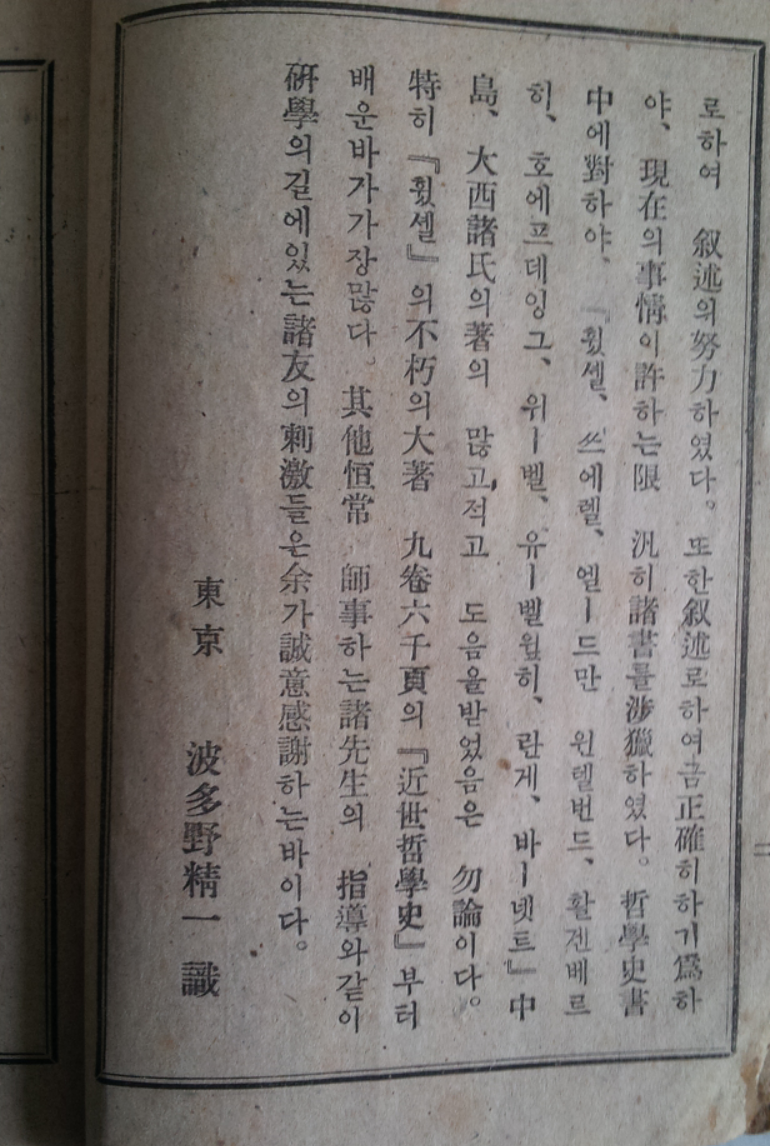 로하여 叙述의努力하였다。또한叙述로하여금正確히하기爲하
야、現在의事情이許하는限 汎히諸書를涉獵하였다。哲學史書
中에對하야、『휬셀、쯔에렐、엘ー드만 윈델번드、활켄베르
히、호에프데잉그、위ー벨、유ー벨윕히、란게、바ー넷트』中
島、大西諸氏의著의 많고적고 도음을받었음은 勿論이다。
特히『휬셀』의不朽의大著 九卷六千頁의『近世哲學史』부터
배운바가가장많다。其他恒常 師事하는諸先生의 指導와같이
硏學의길에있는諸友의刺激들은余가誠意感謝하는바이다。
東京 波多野精一 識